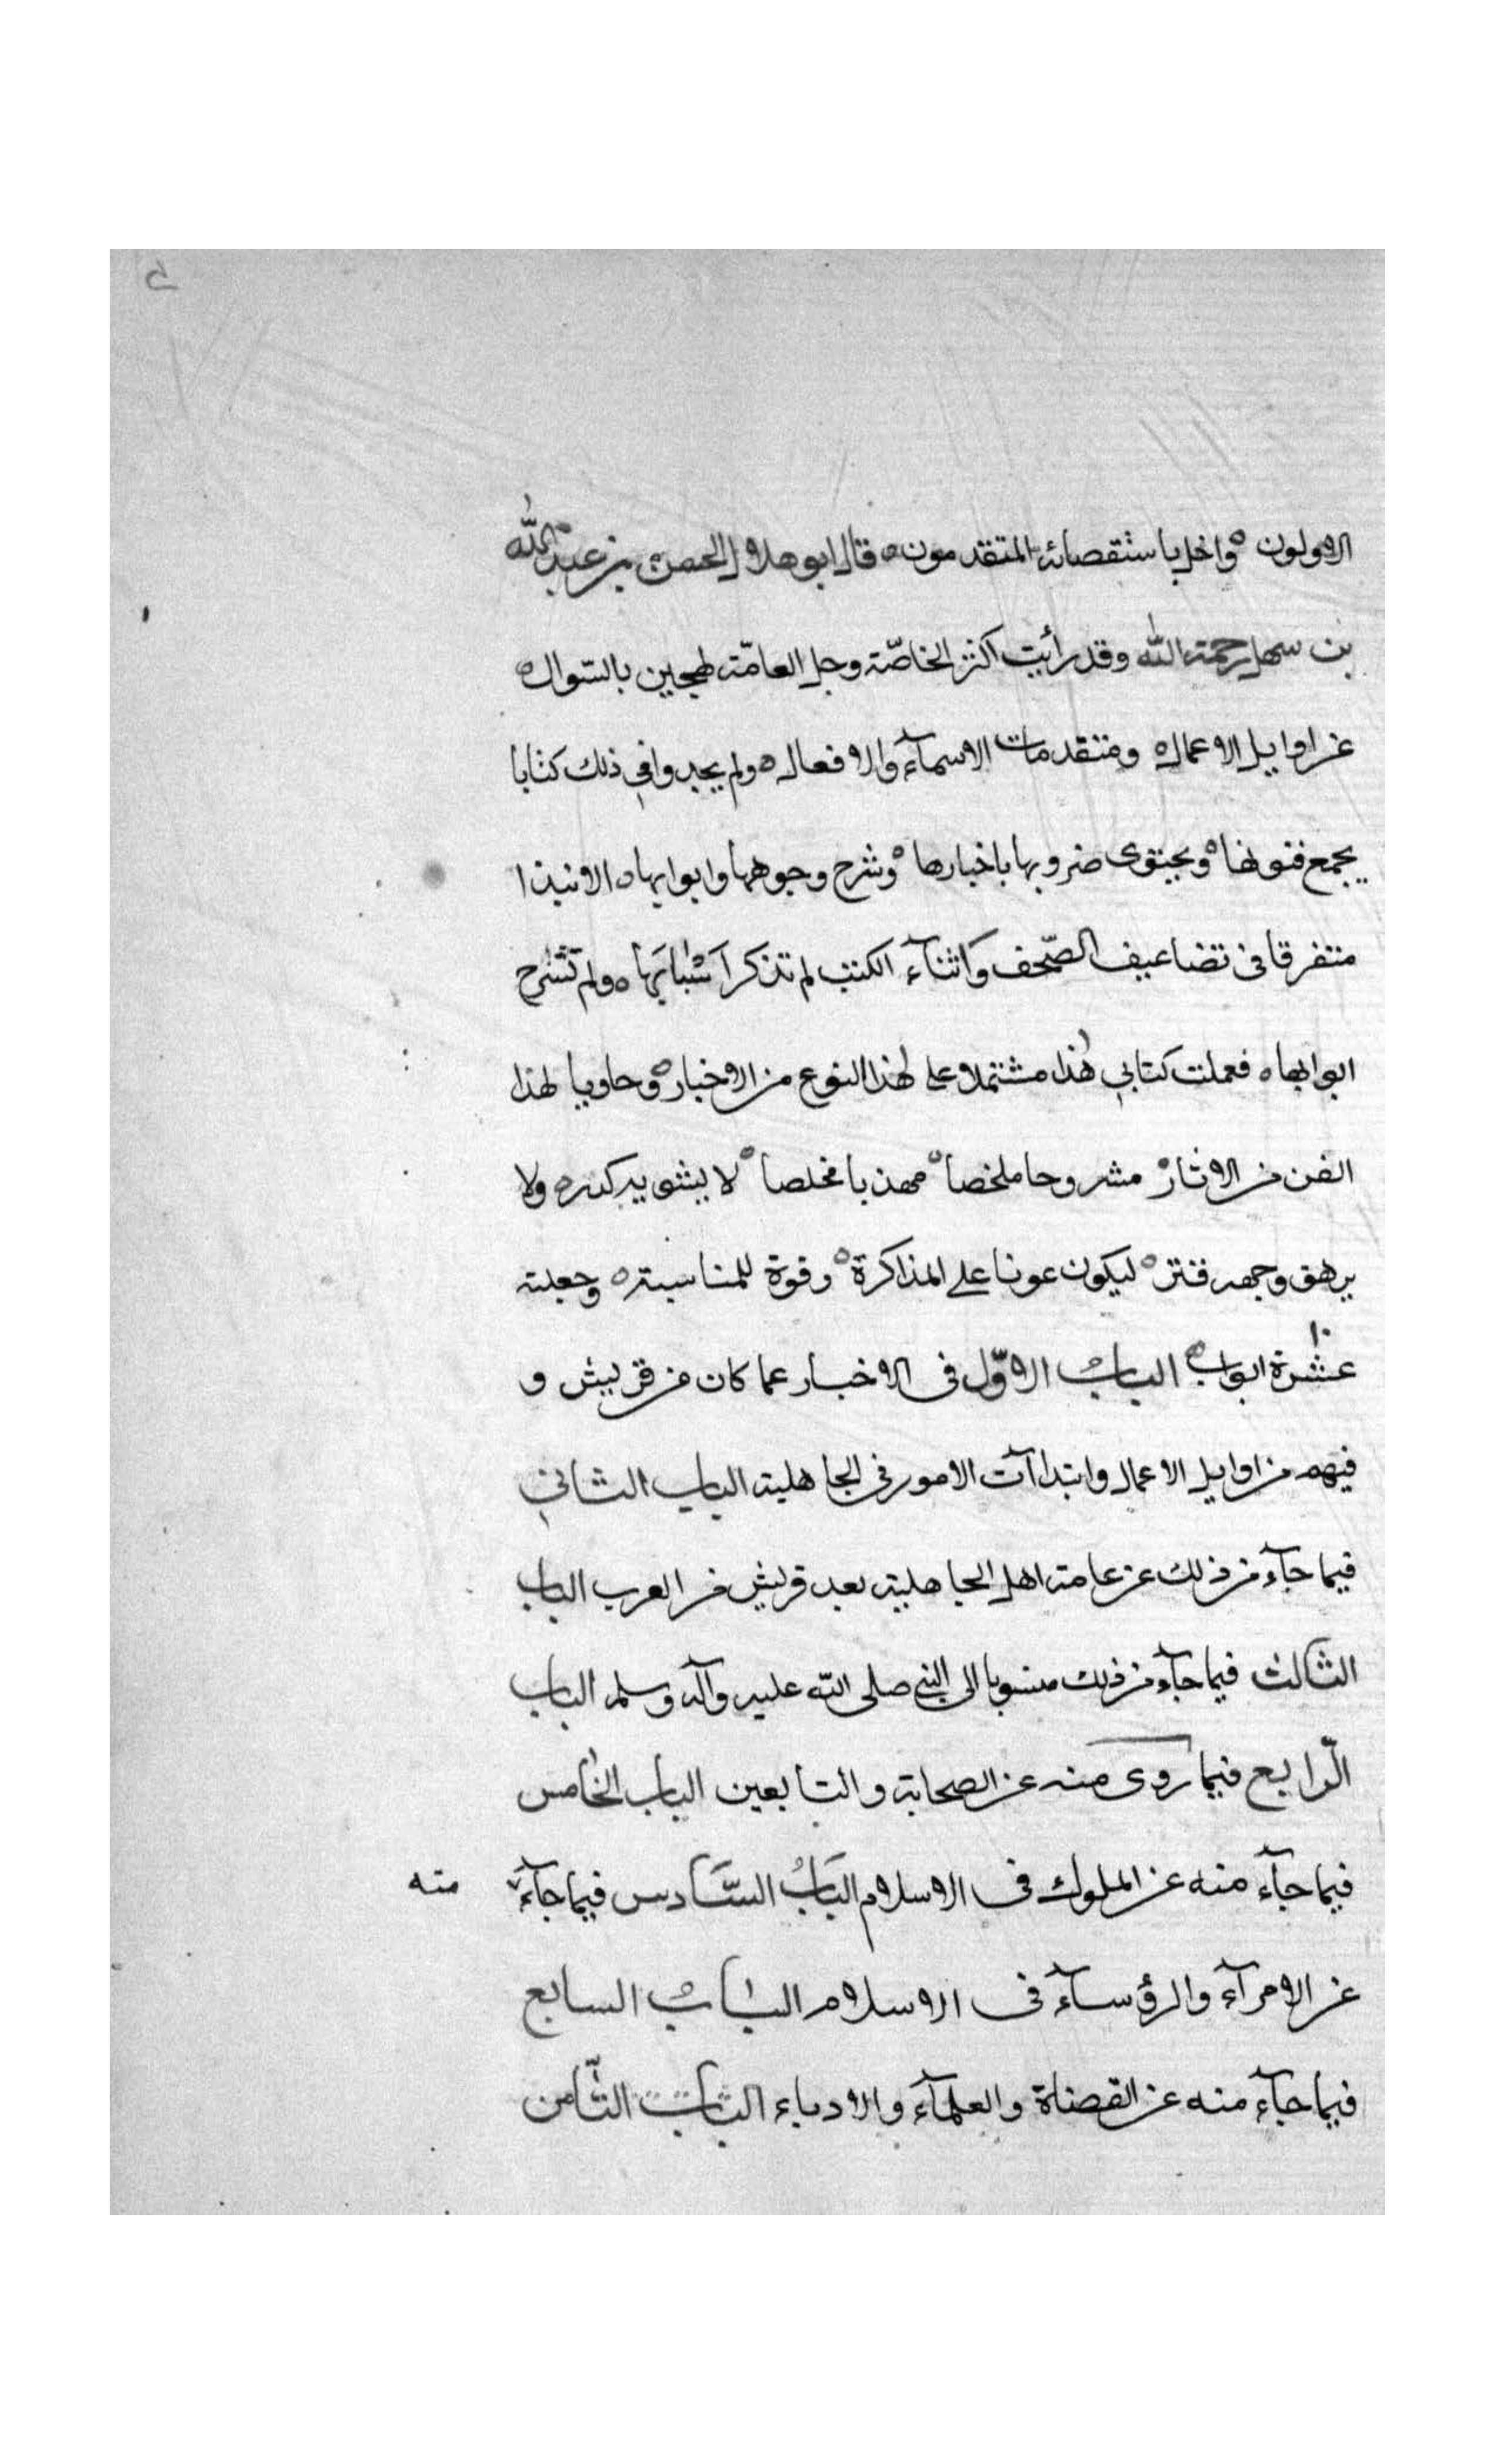 الاولون ه واخل باستقصائه المتقدمون ه قال ابو هلال الحسن بن عبد الله
بن سهل رحمة الله وقد رأيت اكثر الخاصّة وجل العامّة لهجين بالسّوال ه
عن اوايل الاعمال ه ومتقدمات الاسمآء والافعال ه ولم يجدوا في ذلك كتابا
يجمع فنونها ه ويحتوى ضروبها باخبارها ه وشرح وجوهها وابوابها ه الا نبذا
متفرقا فى تضاعيف الصّحف واثنآء الكتب لم تذكر اسْبابَها ه ولم تشرح
ابوابها ه فعملت كتابي هٰذا مشتملا على لهذا النوع من الاخبار ه وحاويا لهذا
الفن من الاثار ه مشروحا ملخصا ه مهذبا مخلصا ه لا يشوبه كدر ه ولا
يرهق وجهه قتر ه ليكون عونا على المذاكرة ه وقوة للمناسبة ه وجعلته
١٠
عشرة ابواب ه الباب الاوّل فى الاخبار عما كان من قريش و
فيهم من اوايل الاعمال وابتداآت الامور فى الجاهلية الباب الثانى
فيما جآء من ذلك عن عامة اهل الجاهلية بعد قريش من العرب الباب
الثالث فيما جآء من ذلك منسوبا الى النبي صلى الله عليه وآله وسلم الباب
الّرابع فيما روى منه عن الصحابة والتابعين الباب الخامس
فيما جآء منه عن الملوك فى الاسلام البَابُ السَّادس فيما جآءَ منه
عن الامرآء والرؤسآء فى الاسلام الباب السابع
فيما جآء منه عن القضاة والعلمآء والادباء الباب الثّامن